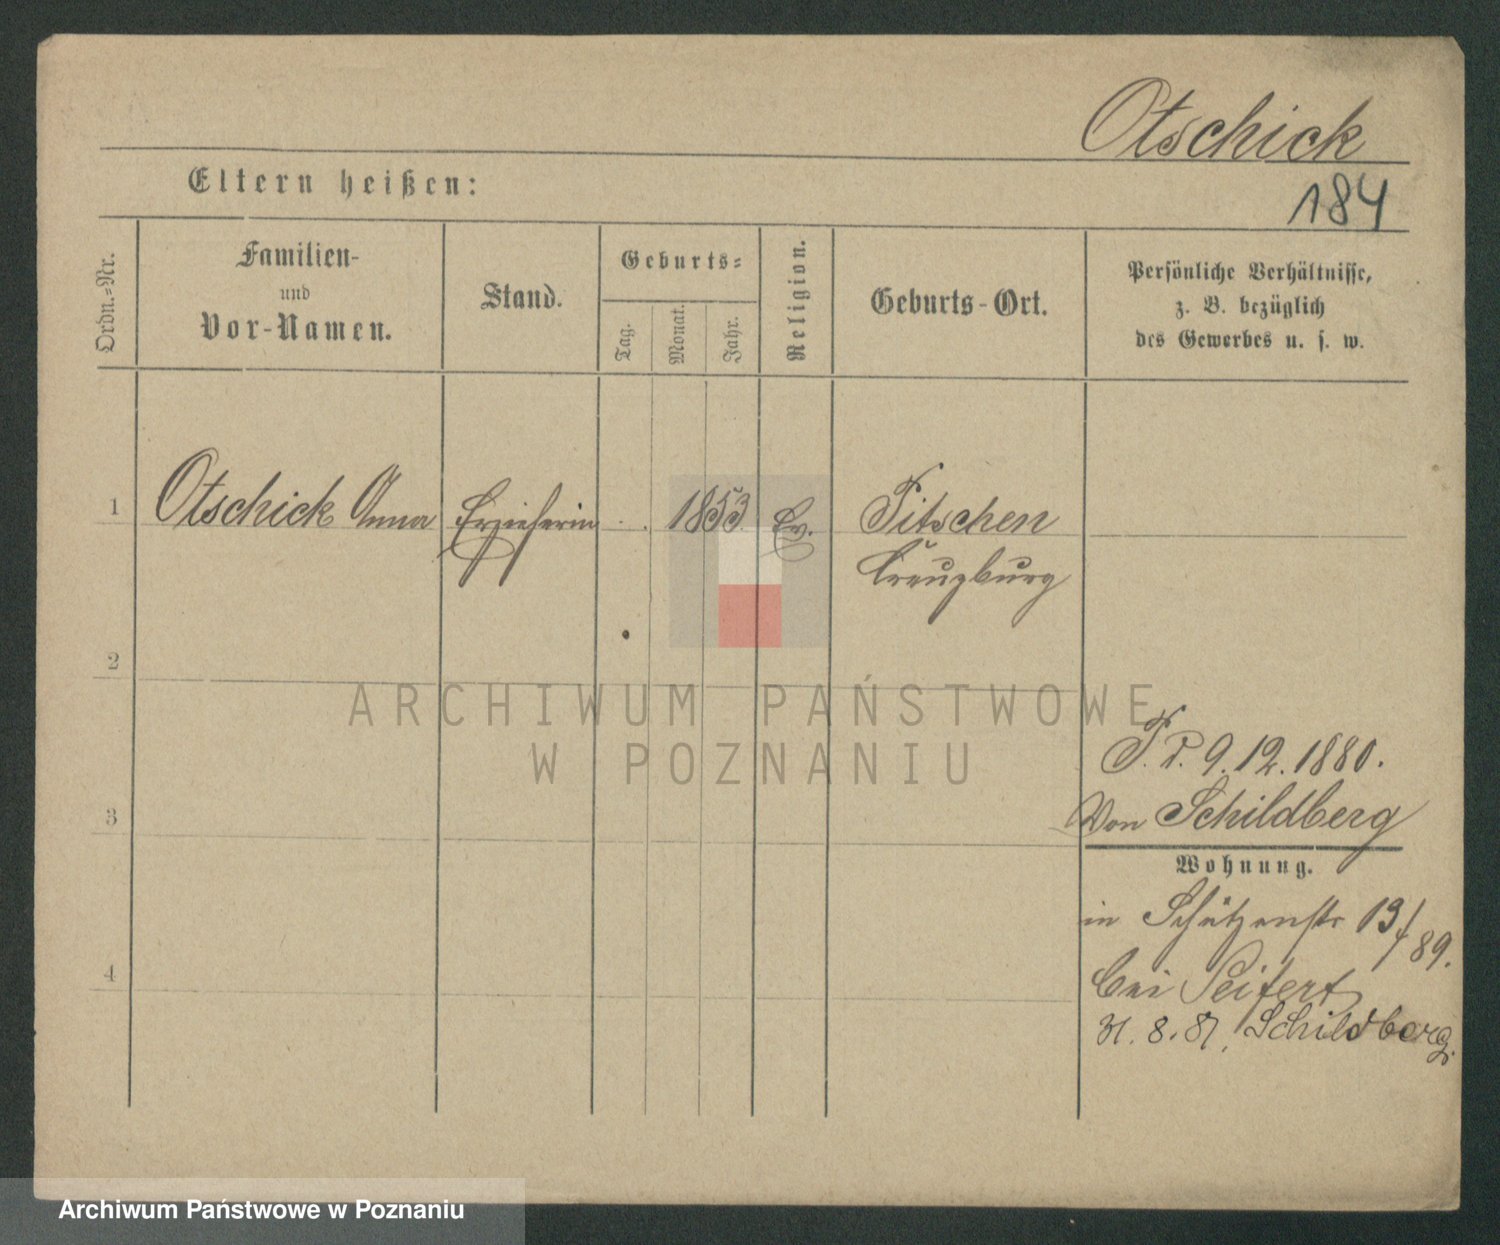 Otschick
Eltern heißen:
184
Ordn.-Nr.
Familien-
und
Vor-Namen.
Stand.
Geburts-
Tag.
Monat.
Jahr.
Religion.
Geburts-Ort.
Persönliche Verhältnisse,
z. B. bezüglich
des Gewerbes u. s. w.
1 Otschick Anna Erzieherin 1853 Ev. Pitschen
Creuzburg
2
ARCHIWUM PAŃSTWOWE
W POZNANIU
9.12.1880.
Von Schildberg
3
Wohnung.
in Schützenstr 19/89.
bei Seifert
4
31. 8. 81, Schildberg.
Archiwum Państwowe w Poznaniu